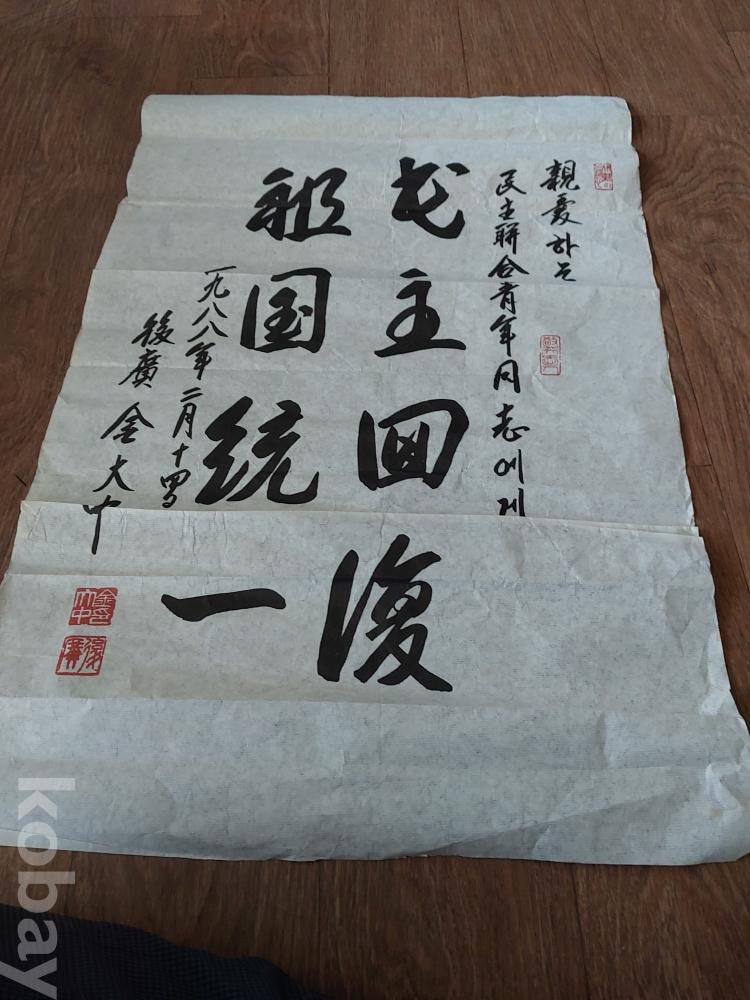 親愛하는
民主聯合青年同志에게
民主回復
祖国統一
一九八八年 二月十四日
後廣 金大中
金大中印
後廣
kobay